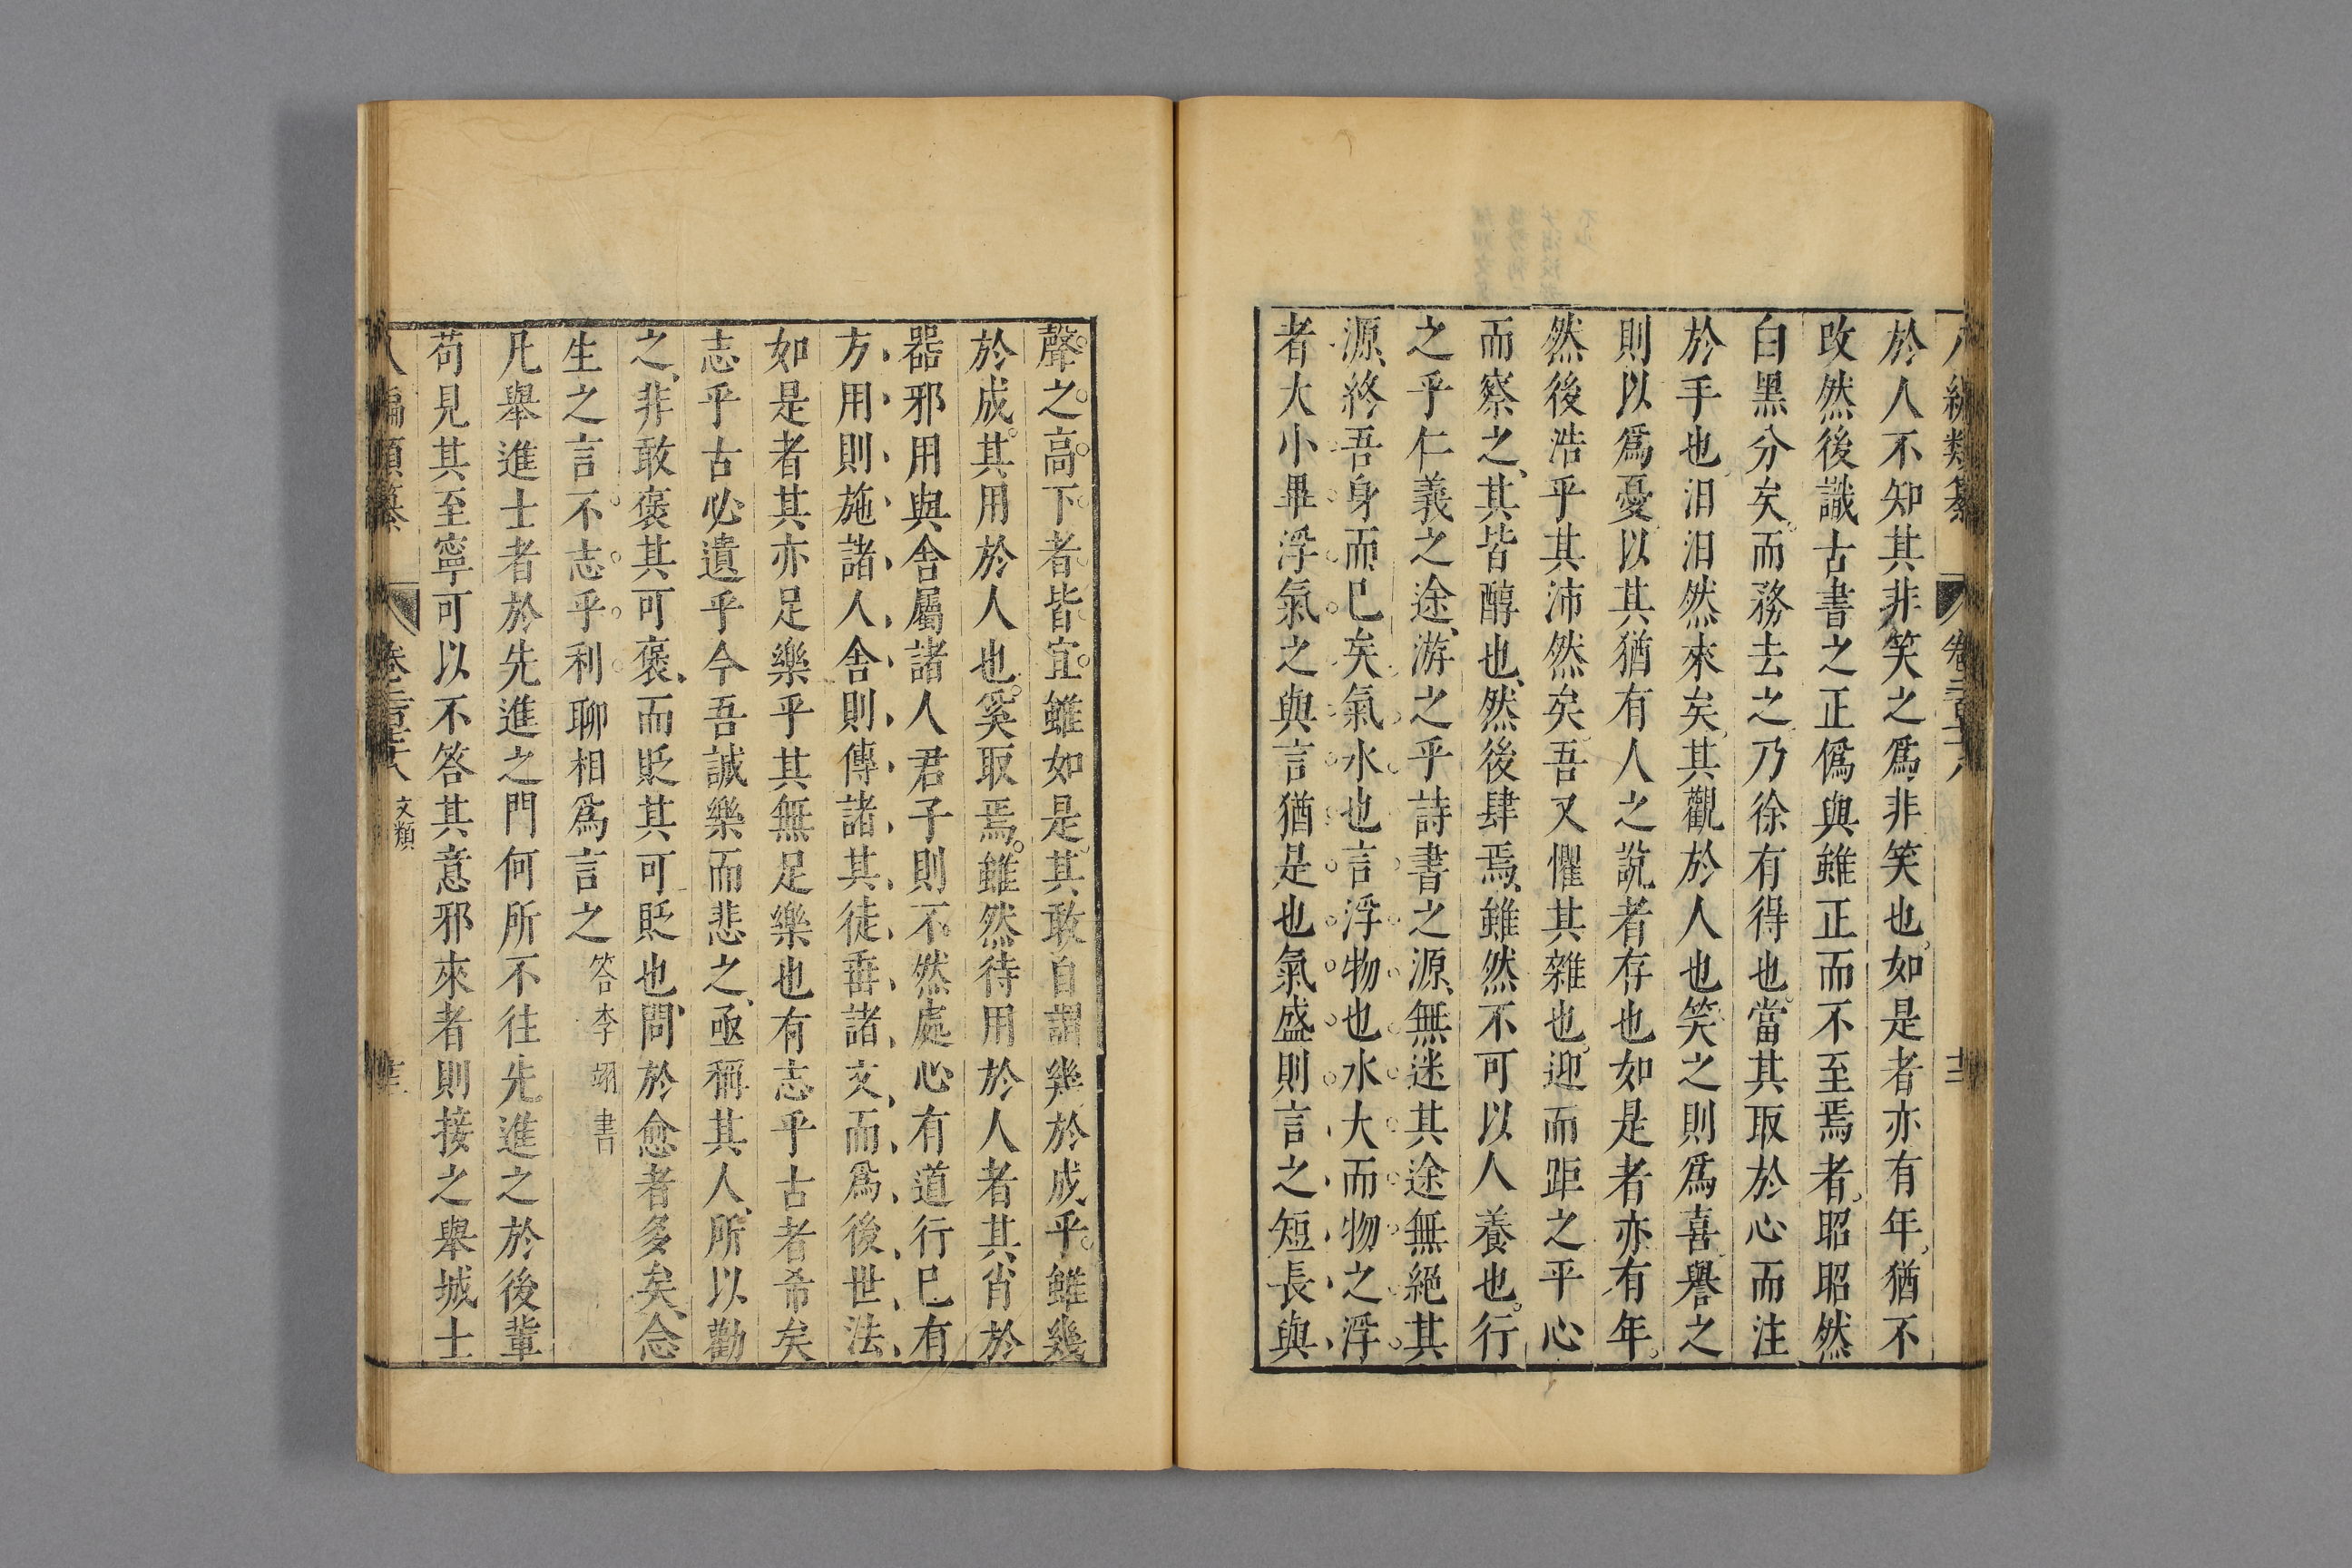 於人不知其非笑之爲非笑也如是者亦有年猶不
改然後識古書之正僞與雖正而不至焉者昭昭然
白黑分矣而務去之乃徐有得也當其取於心而注
於手也汨汨然來矣其觀於人也笑之則爲喜譽之
則以爲憂以其猶有人之說者存也如是者亦有年
然後浩乎其沛然矣吾又懼其雜也迎而距之平心
而察之其皆醇也然後肆焉雖然不可以人養也行
之乎仁義之途游之乎詩書之源無迷其途無絕其
源終吾身而巳矣氣水也言浮物也水大而物之浮
者大小畢浮氣之與言猶是也氣盛則言之短長與
聲之高下者皆宜雖如是其敢自謂幾於成乎雖幾
於成其用於人也奚取焉雖然待用於人者其肖於
器邪用與舍屬諸人君子則不然處心有道行巳有
方用則施諸人舍則傳諸其徒垂諸文而爲後世法
如是者其亦足樂乎其無足樂也有志乎古者希矣
志乎古必遺乎今吾誠樂而悲之亟稱其人所以勸
之非敢褒其可褒而貶其可貶也問於愈者多矣念
生之言不志乎利聊相爲言之 答李翊書
凡舉進士者於先進之門何所不往先進之於後輩
苟見其至寧可以不答其意邪來者則接之舉城士
八編類纂 卷 文類